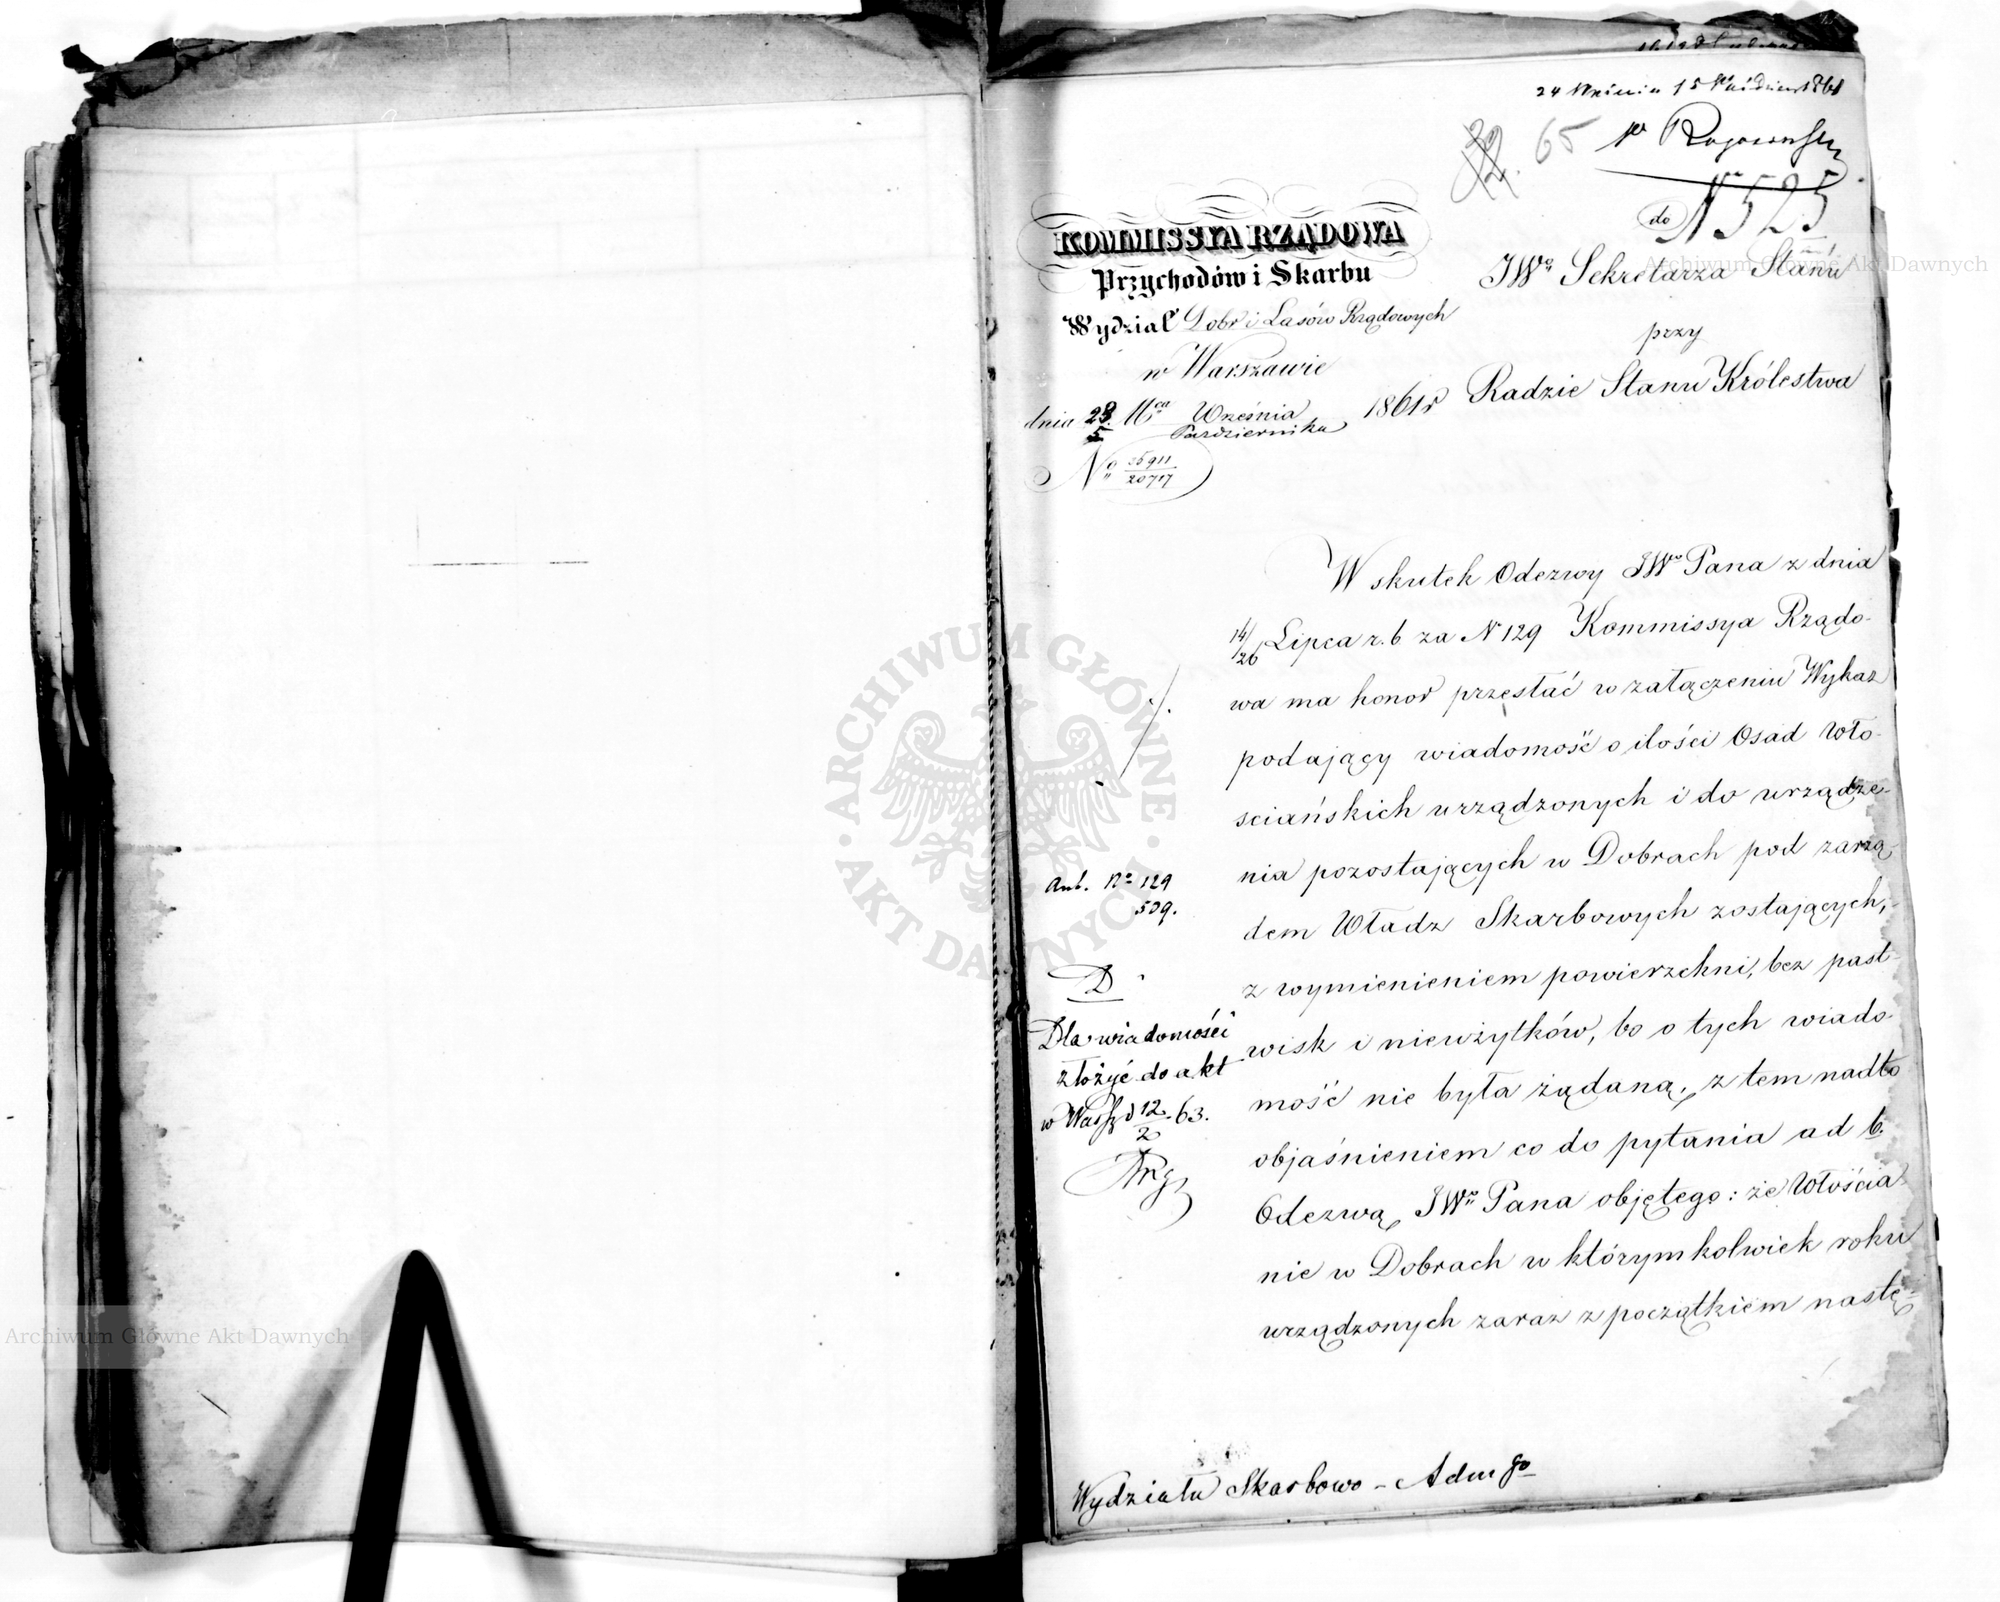 24 Września / 5 Października 1861
65
N 525
KOMMISSYA RZĄDOWA
Przychodów i Skarbu
Wydział Dobr i Lasów Rządowych
w Warszawie
dnia 23/5 Mca Września/Października 1861 r
No 35911/20717
do
JWo Sekretarza Stanu
przy
Radzie Stanu Królestwa
W skutek Odezwy JWo Pana z dnia
14/26 Lipca r. b za N 129 Kommissya Rządo-
wa ma honor przesłać w załączeniu Wykaz
podający wiadomość o ilości Osad Wło-
sciańskich urządzonych i do urządze-
nia pozostających w Dobrach pod zarzą-
dem Władz Skarbowych zostających,
z wymienieniem powierzchni, bez past-
wisk i nieużytków, bo o tych wiado-
mość nie była żądaną, z tem nadto
objaśnieniem co do pytania ad 6.
Odezwą JWo Pana objętego: że Włościa-
nie w Dobrach w którymkolwiek roku
urządzonych zaraz z początkiem nastę-
No 129
509.
D
Dla wiadomości
złożyć do akt
w Warsz d 12/2 63.
Wydziału Skarbowo - Adm go
Archiwum Główne Akt Dawnych
Archiwum Główne Akt Dawnych
ARCHIWUM GŁÓWNE
AKT DAWNYCH